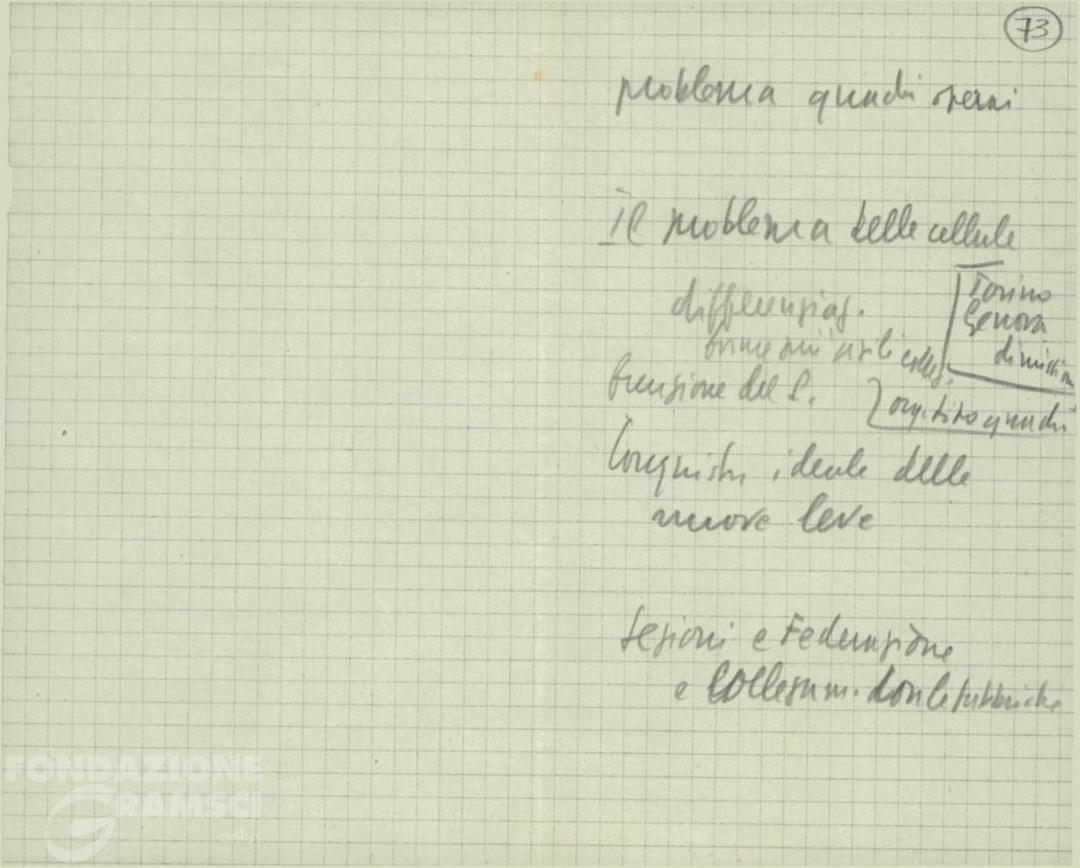 73
problema quadri operai
Il problema delle cellule
differenziaz.
Torino
Genova
dimissioni
forme più
funzione del S.
quadri
Conquista ideale delle
nuove leve
Sezioni e Federazione
e collegam. con le fabbriche
FONDAZIONE
GRAMSCI
onlus